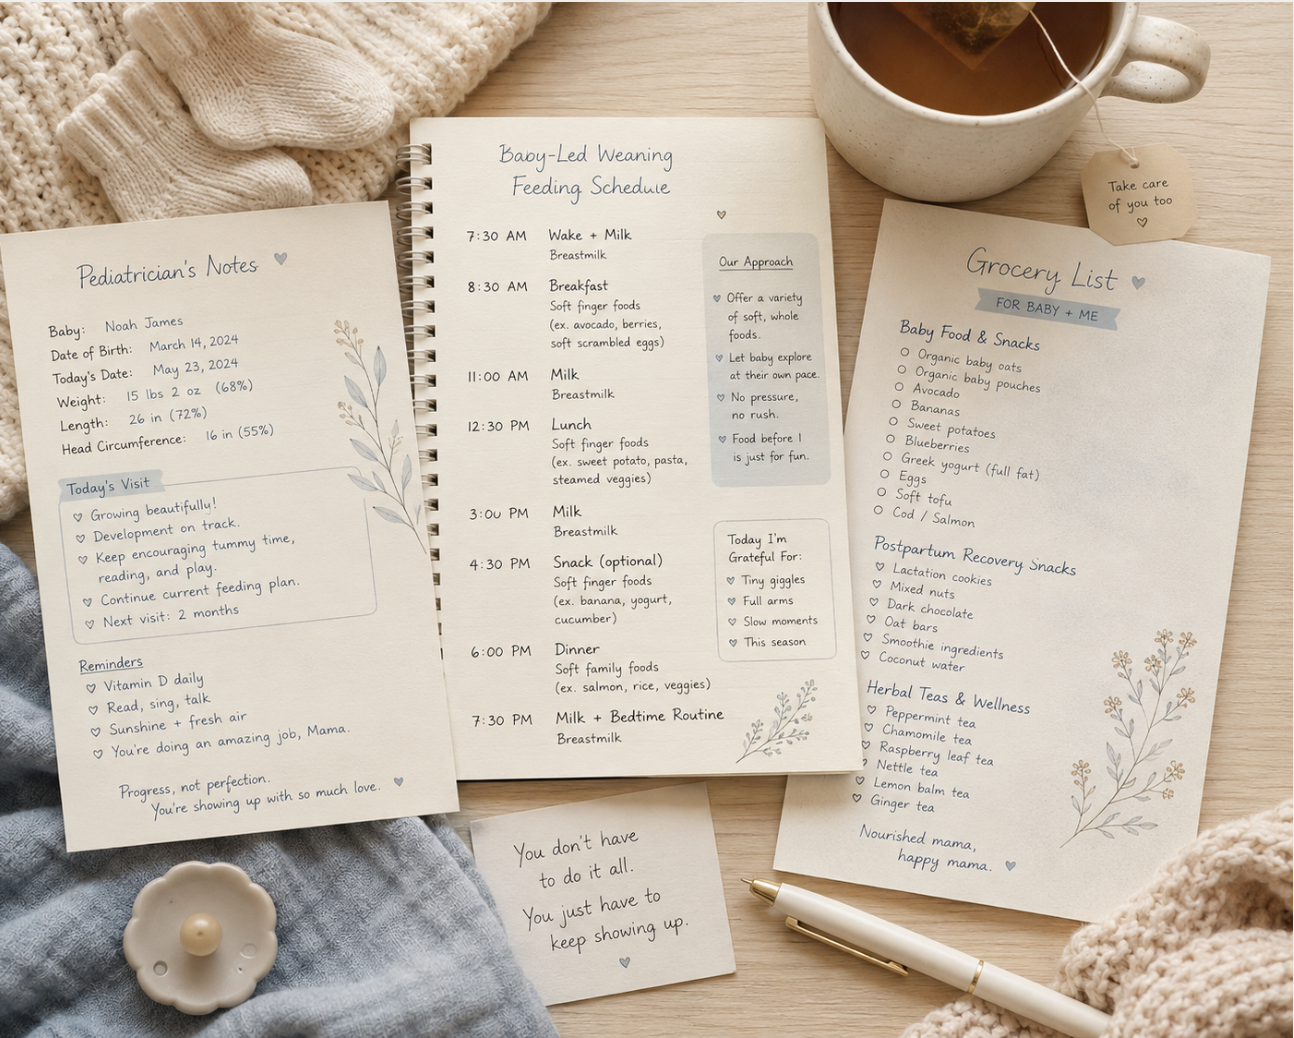 Pediatrician's Notes
Baby: Noah James
Date of Birth: March 14, 2024
Today's Date: May 23, 2024
Weight: 15 lbs 2 oz (68%)
Length: 26 in (72%)
Head Circumference: 16 in (55%)
Today's Visit
Growing beautifully!
Development on track.
Keep encouraging tummy time,
reading, and play.
Continue current feeding plan.
Next visit: 2 months
Reminders
Vitamin D daily
Read, sing, talk
Sunshine + fresh air
You're doing an amazing job, Mama.
Progress, not perfection.
You're showing up with so much love.
Baby-Led Weaning
Feeding Schedule
7:30 AM Wake + Milk
Breastmilk
8:30 AM Breakfast
Soft finger foods
(ex. avocado, berries,
soft scrambled eggs)
11:00 AM Milk
Breastmilk
12:30 PM Lunch
Soft finger foods
(ex. sweet potato, pasta,
steamed veggies)
3:00 PM Milk
Breastmilk
4:30 PM Snack (optional)
Soft finger foods
(ex. banana, yogurt,
cucumber)
6:00 PM Dinner
Soft family foods
(ex. salmon, rice, veggies)
7:30 PM Milk + Bedtime Routine
Breastmilk
Our Approach
Offer a variety
of soft, whole
foods.
Let baby explore
at their own pace.
No pressure,
no rush.
Food before 1
is just for fun.
Today I'm
Grateful For:
Tiny giggles
Full arms
Slow moments
This season
Take care
of you too
Grocery List
FOR BABY + ME
Baby Food & Snacks
Organic baby oats
Organic baby pouches
Avocado
Bananas
Sweet potatoes
Blueberries
Greek yogurt (full fat)
Eggs
Soft tofu
Cod / Salmon
Postpartum Recovery Snacks
Lactation cookies
Mixed nuts
Dark chocolate
Oat bars
Smoothie ingredients
Coconut water
Herbal Teas & Wellness
Peppermint tea
Chamomile tea
Raspberry leaf tea
Nettle tea
Lemon balm tea
Ginger tea
Nourished mama,
happy mama.
You don't have
to do it all.
You just have to
keep showing up.